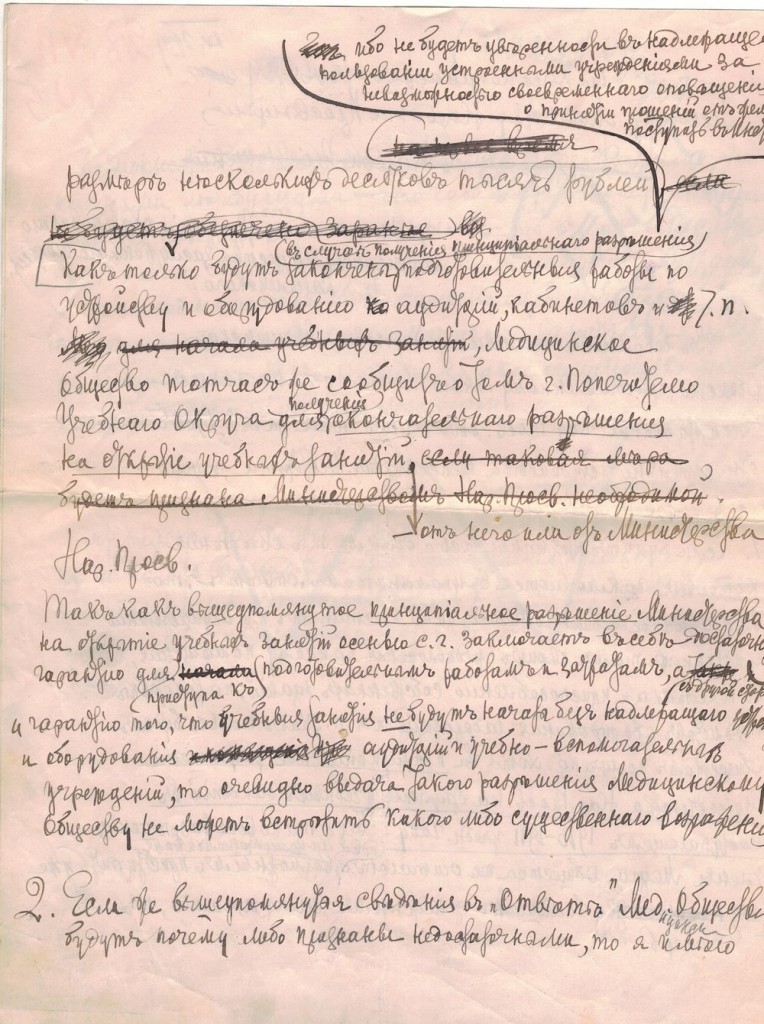 ибо не будетъ уверенности въ надлежаще
пользованіи устроенными учрежденіями за
невозможностью своевременнаго оповѣщенія
о принятіи прошеній отъ
поступать въ
на первое время
размѣрѣ нѣсколькихъ десятковъ тысячъ рублей если
не будетъ обезпечено заранѣе
(въ случаѣ полученія принципіальнаго разрѣшенія)
Какъ только будутъ закончены подготовительныя работы по
устройству и оборудованію аудиторій, кабинетовъ и т. п.
для начала учебныхъ занятій, Медицинское
Общество тотчасъ же сообщитъ о томъ г. Попечителю
полученія
Учебнаго Округа для окончательнаго разрѣшенія
на открытіе учебныхъ занятій, если таковая мѣра
будетъ признана Министерствомъ Нар. Просв. необходимой.
— отъ него или отъ Министерства
Нар. Просв.
Такъ какъ вышеупомянутое принципіальное разрѣшеніе Министерства
на открытіе учебныхъ занятій осенью с. г. заключаетъ въ себѣ достаточн
гарантію для начала подготовительнымъ работамъ и затратамъ, а также
приступа къ съ другой стор
и гарантію того, что учебныя занятія не будутъ начаты безъ надлежащаго
и оборудованія аудиторій и учебно-вспомогательныхъ
учрежденій, то очевидно выдача такого разрѣшенія Медицинскому
Обществу не можетъ встрѣтить какого либо существеннаго возраженія
2. Если же вышеупомянутыя свѣдѣнія въ „Отвѣтѣ" Мед. Общества
будутъ почему либо признаны недостаточными, то я